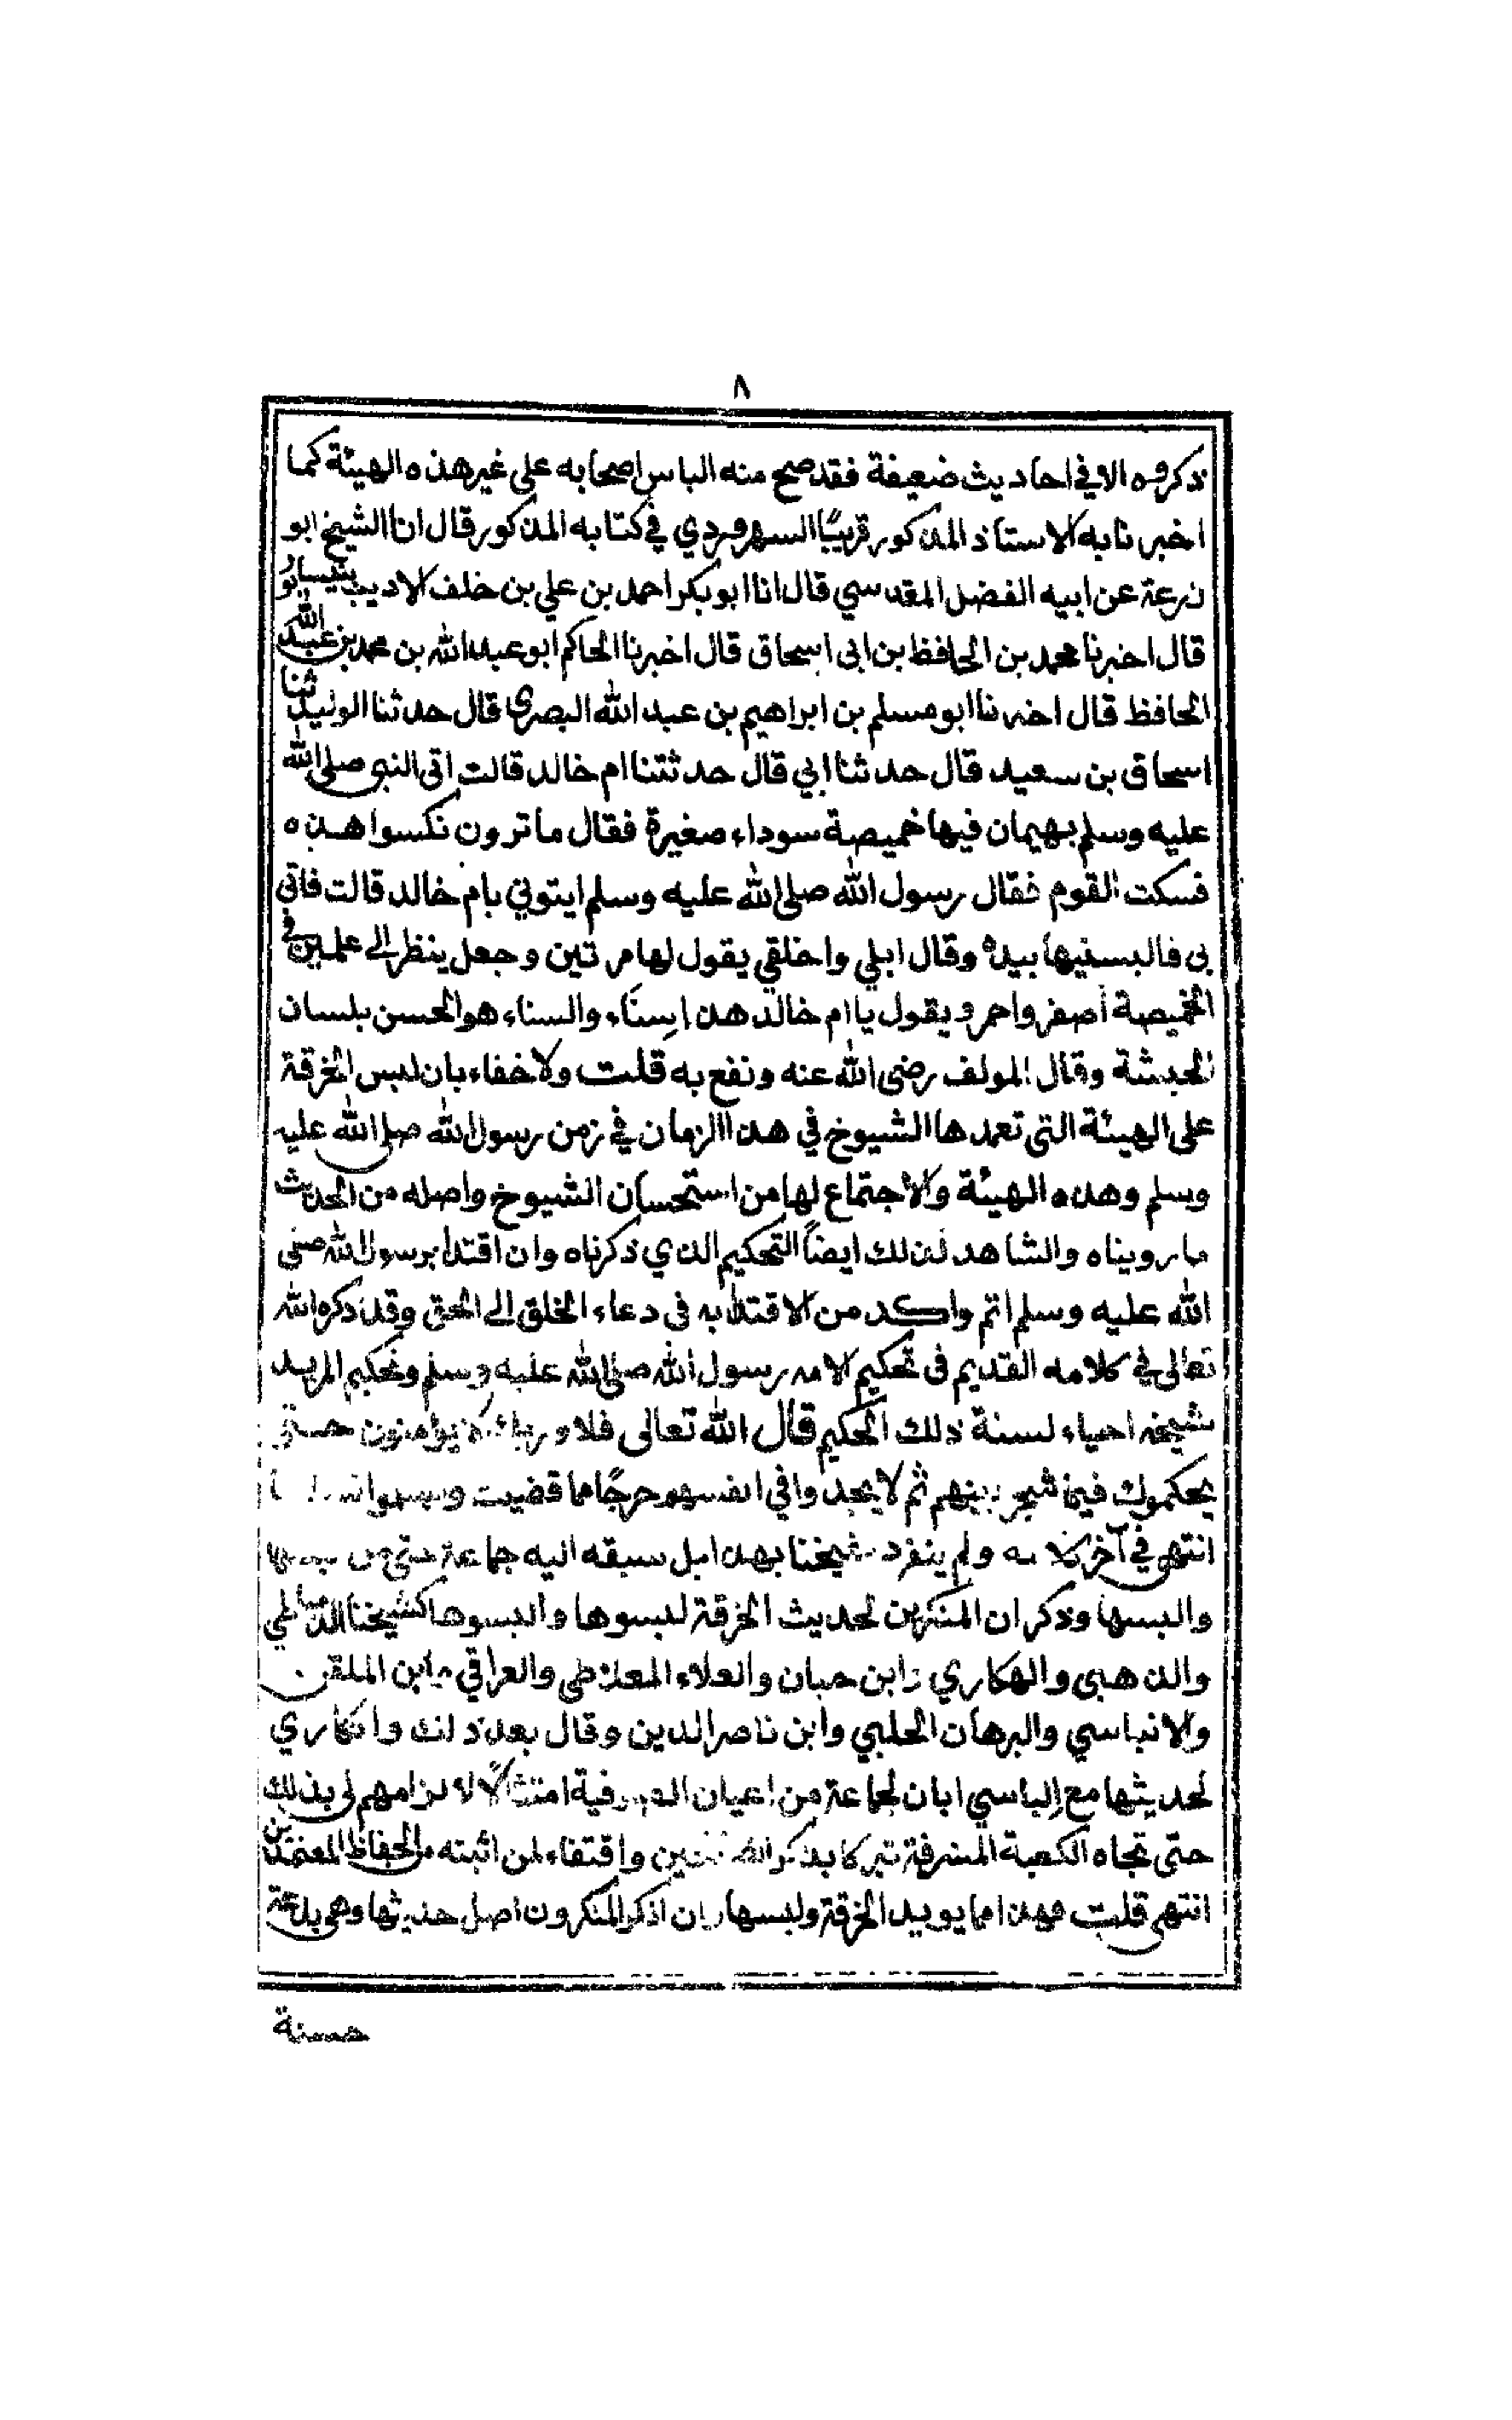 ٨
ذكروه الا في احاديث ضعيفة فقد صح منه الباس اصحابه على غير هذه الهيئة كما
اخبرنا به الاستاذ المذكور قريبًا السهروردي في كتابه المذكور قال انا الشيخ ابو
زرعة عن ابيه الفضل المقدسي قال انا ابو بكر احمد بن علي بن خلف الاديب بنيسابور
قال اخبرنا محمد بن الحافظ بن ابى اسحاق قال اخبرنا الحاكم ابو عبد الله بن محمد بن عبد الله
الحافظ قال اخبرنا ابو مسلم بن ابراهيم بن عبد الله البصرى قال حدثنا الوليد ثنا
اسحاق بن سعيد قال حدثنا ابي قال حدثتنا ام خالد قالت اتى النبى صلى الله
عليه وسلم بهيمان فيها خميصة سوداء صغيرة فقال ما ترون نكسوا هذه
فسكت القوم فقال رسول الله صلى الله عليه وسلم ايتوني بام خالد قالت فاتى
بى فالبسنيها بيده وقال ابلي واخلقي يقول لها مرتين وجعل ينظر الى علمين في
الخميصة أصفر واحمر ويقول يا ام خالد هذا سنَاء والسناء هو الحسن بلسان
الحبشة وقال المولف رضى الله عنه ونفع به قلت ولا خفاء بان لبس الخرقة
على الهيئة التى تعمدها الشيوخ في هذا الزمان في زمن رسول الله صلى الله عليه
وسلم وهذه الهيئة والاجتماع لها من استحسان الشيوخ واصله من الحديث
ما رويناه والشاهد لذلك ايضاً التحكيم الذي ذكرناه وان اقتدا برسول الله صلى
الله عليه وسلم اتم واكد من الاقتدا به فى دعاء الخلق الى الحق وقد ذكره الله
تعالى في كلامه القديم فى تحكيم الامه رسول الله صلى الله عليه وسلم وتحكيم المريد
شيخه احياء لسنة ذلك الحكيم قال الله تعالى فلا وربك لا يؤمنون حتى
يحكموك فيما شجر بينهم ثم لا يجدوا في انفسهم حرجًا مما قضيت ويسلموا
انتهى في آخر كلامه ولم ينفرد شيخنا بهذا بل سبقه اليه جماعة حتى من لبسها
والبسها وذكر ان المنكرين لحديث الخرقة لبسوها والبسوها كشيخنا الدمياطي
والذهبى والهكاري وابن حبان والعلاء المغلاطى والعراقي وابن الملقن
والانباسي والبرهان الحلبي وابن ناصر الدين وقال بعد ذلك وانكاري
لحديثها مع الباسي ابان لجماعة من اعيان الصوفية امتثالاً لالزامهم لى بذلك
حتى تجاه الكعبة المشرفة تبركا بذكر الصالحين واقتفاء لمن اثبته من الحفاظ المعتمدين
انتهى قلت فهذا مما يويد الخرقة ولبسها وان اذكر المنكرون اصل حديثها وهى بدعة
حسنة